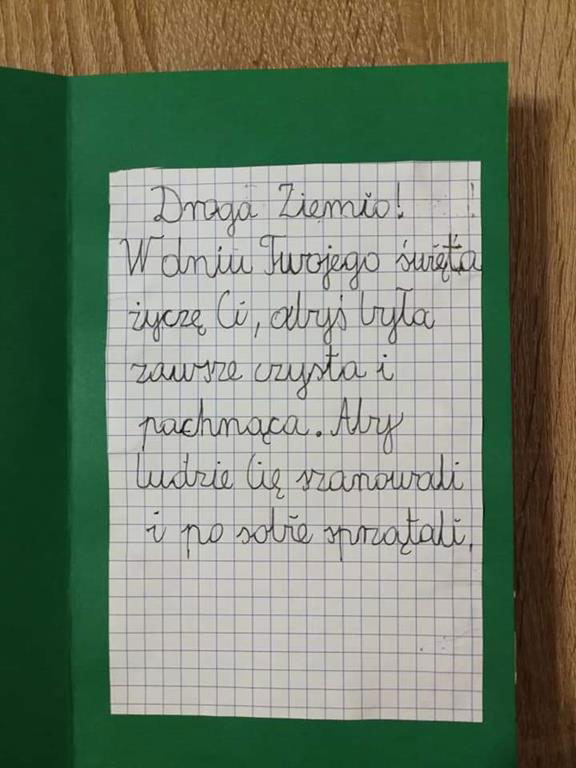 Droga Ziemio!
W dniu Twojego święta
życzę Ci, abyś była
zawsze czysta i
pachnąca. Aby
ludzie Cię szanowali
i po sobie sprzątali.